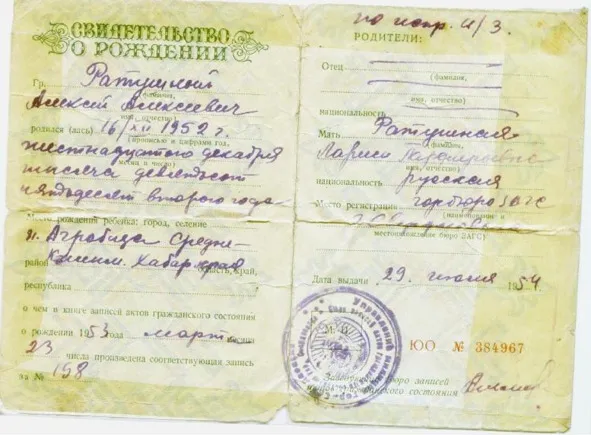 СВИДЕТЕЛЬСТВО
О РОЖДЕНИИ
Гр. Ратушной
фамилия,
Алексей Алексеевич
имя, отчество)
родился (лась) 16/XII 1952 г.
(прописью и цифрами год,
шестнадцатого декабря
месяц и число)
тысяча девятьсот
пятьдесят второго года
Место рождения ребенка: город, селение
п. Агробаза Средне-
район Хабар край
область, край,
республика
о чем в книге записей актов гражданского состояния
о рождении 1953 года март месяца
23 числа произведена соответствующая запись
за № 198
по испр. и/з.
РОДИТЕЛИ:
Отец
(фамилия,
имя, отчество)
национальность
Мать Ратушная
(фамилия,
Лариса
имя, отчество)
национальность русская
Место регистрации горбюро ЗАГС
(наименование и
местонахождение бюро ЗАГС)
Дата выдачи 29 июля 1954 г.
ЮО № 384967
бюро записей
состояния